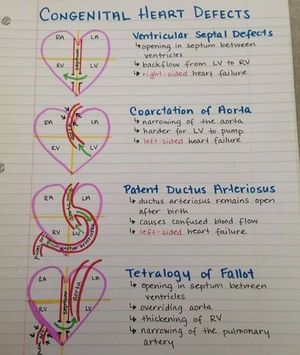 CONGENITAL HEART DEFECTS
Ventricular Septal Defects
↳ opening in septum between
ventricles
↳ backflow from LV to RV
↳ right-sided heart failure
RA
LA
septum
RV
LV
Coarctation of Aorta
↳ narrowing of the aorta
↳ harder for LV to pump
↳ left-sided heart failure
RA
LA
aorta
RV
LV
Patent Ductus Arteriosus
↳ ductus arteriosus remains open
after birth
↳ causes confused blood flow
↳ left-sided heart failure
RA
LA
RV
LV
ductus arteriosus
Tetralogy of Fallot
↳ opening in septum between
ventricles
↳ overriding aorta
↳ thickening of RV
↳ narrowing of the pulmonary
artery
RA
LA
septum
aorta
RV
LV